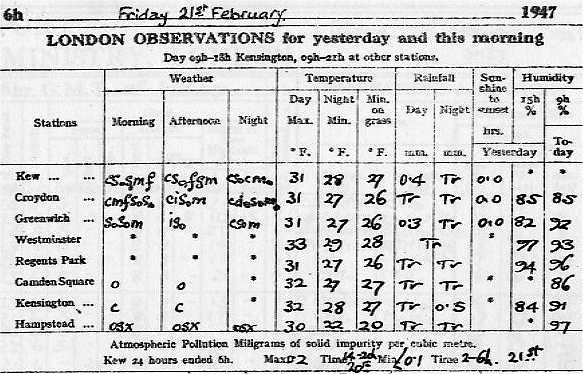 6h Friday 21st February 1947
LONDON OBSERVATIONS for yesterday and this morning
Day 09h-18h Kensington, 09h-21h at other stations.
Weather Temperature Rainfall Sun-shine to sunset Humidity
Stations Morning Afternoon Night Day Max. Night Min. Min. on grass Day Night hrs. 15h % 9h %
° F. ° F. ° F. mm. mm. Yesterday To-day
Kew ... ... 31 28 27 0.4 Tr 0.0 * *
Croydon ... 31 27 26 Tr Tr 0.0 85 85
Greenwich ... 31 27 26 0.3 Tr 0.0 82 92
Westminster * * * 33 29 28 Tr * 97 93
Regents Park * * * 31 27 26 Tr Tr 94 96
Camden Square o o * 32 27 27 Tr Tr * * 86
Kensington ... c c * 32 28 27 Tr 0.5 * 84 91
Hampstead ... osx osx osx 30 22 20 Tr Tr * 97
Atmospheric Pollution Miligrams of solid impurity per cubic metre.
Kew 24 hours ended 6h. Max Time Min <0.1 Time 2-6h. 21st